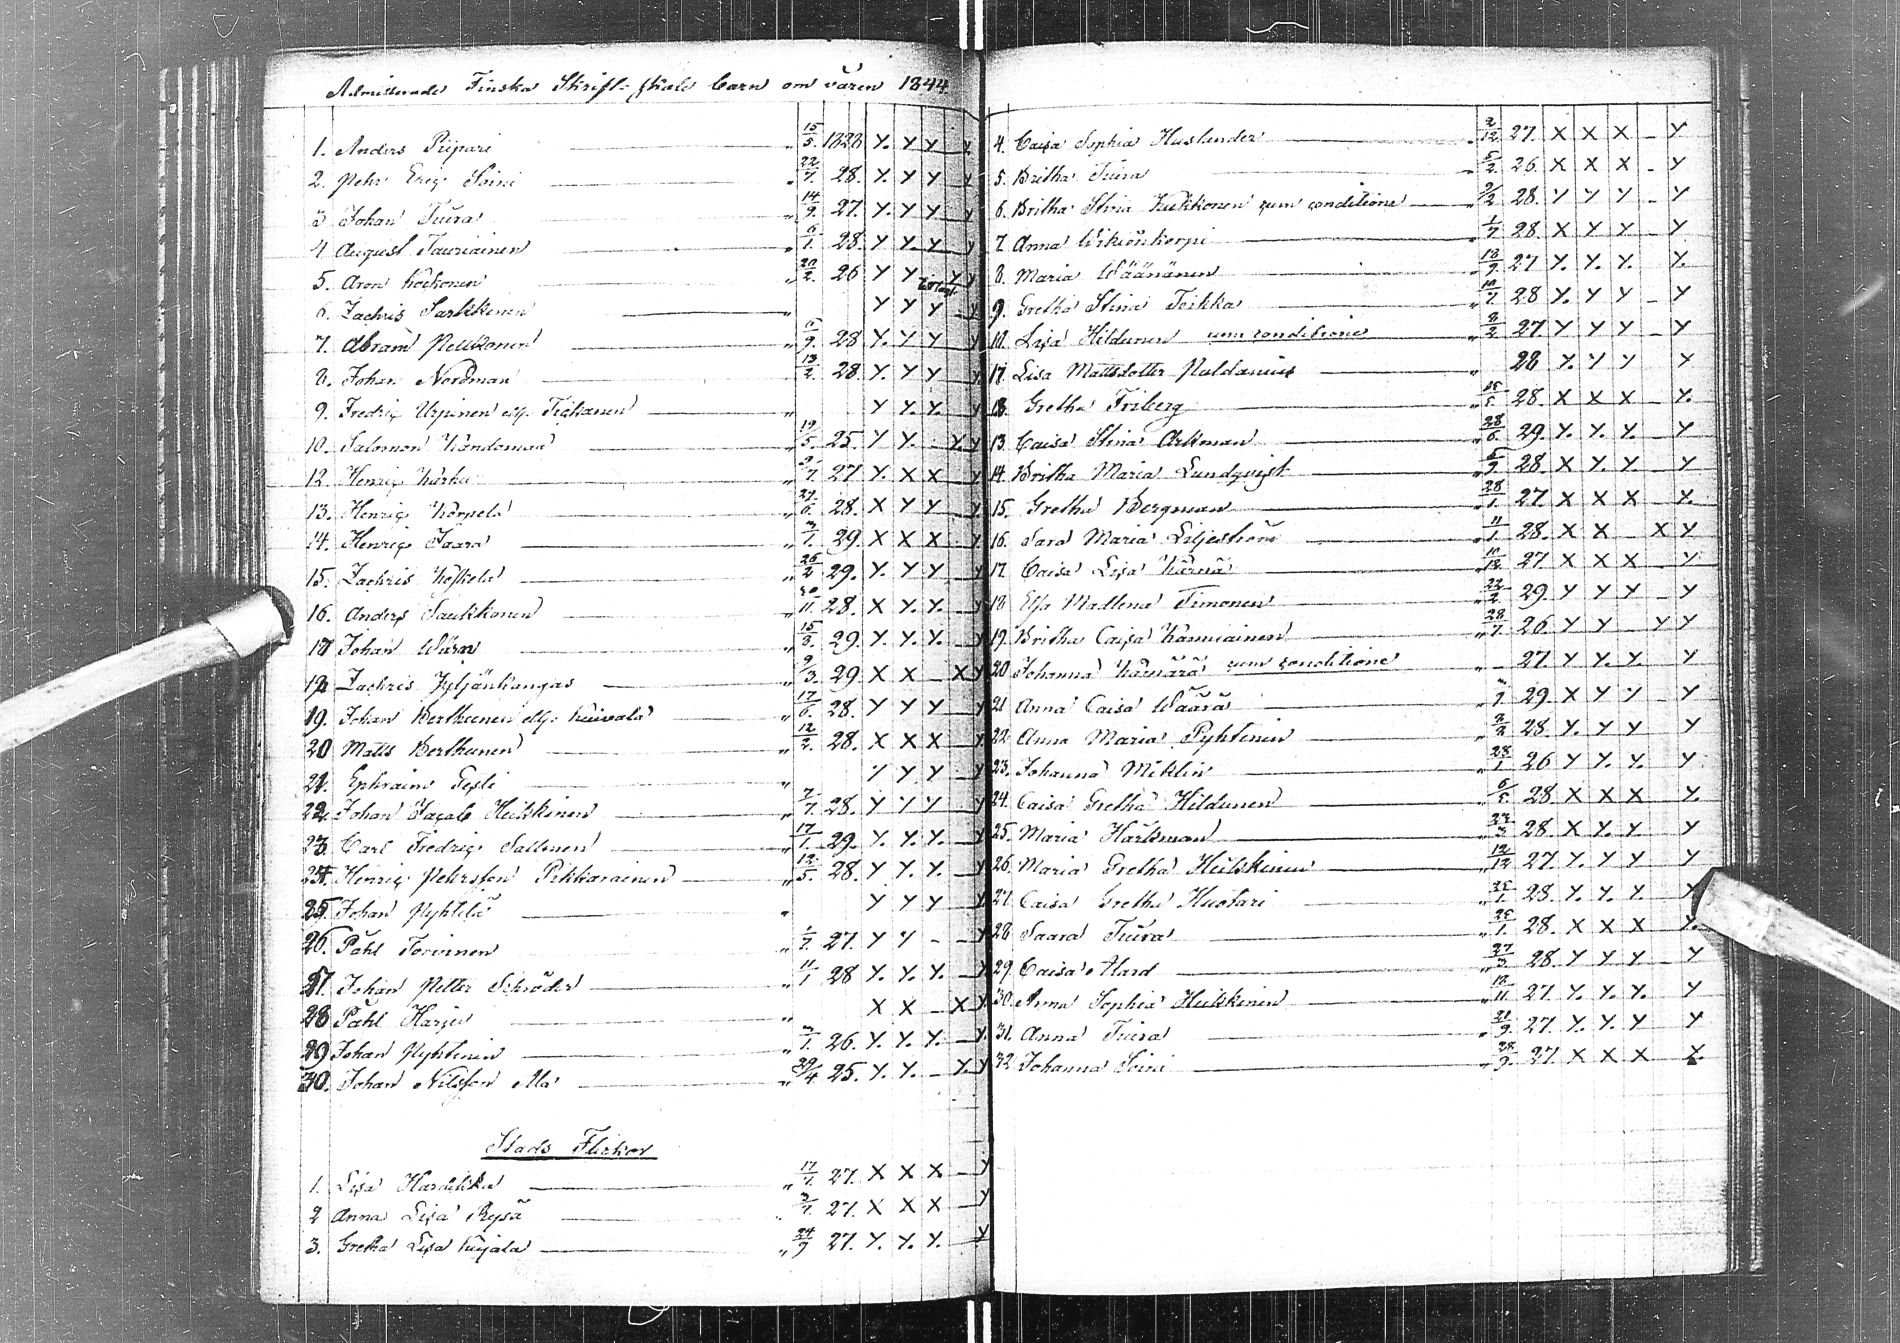 Admitterade Finska Skriftskole barn om våren 1844
1. Anders Piipari " 15/5 1828 Y. Y Y Y
2. Pehr Eric Soini " 22/7 28. Y. Y Y Y
3 Johan Tuira " 14/9 27. Y. Y Y Y
4 August Tauriainen " 6/1 28. Y Y Y Y
5. Aron " 20/2 26 Y Y Y Y
6. Zachris Sarkkinen " Y Y Y Y
7. Abram Pelkonen " 28 Y. Y Y Y
8. Johan Nordman " 13/2 28. Y. Y Y Y
9. Fredric Urpinen Tickanen " Y Y. Y. Y
10. Salomon " 19/5 25. Y Y. - Y. Y
12. Henric " 27 Y. X X Y
13. Henric Korpela " 28. X Y Y Y
14. Henric Jaara " 29. X X X Y
15. Zachris Koskela " 26/2 29. Y. Y Y Y
16. Anders Saukkonen " 28. X Y. Y. Y
17 Johan Wärn " 15/3 29. Y. Y. Y. Y
18 Zachris Jyljänkangas " 9/3 29 X X - X Y
19. Johan Berthunen " 17/6 28. Y Y Y Y
20 Matts Berthunen " 12/2 28. X X X Y
21. Ephraim " Y Y Y Y
22. Johan Jacob Heikkinen " 7/7 28. Y Y Y Y
23. Carl Fredric Sallinen " 17/1 29. Y. Y. Y. Y
24. Henric Pehrsson Pikkarainen " 12/5 28. Y Y. Y. Y
25 Johan Pyhtilä " Y Y Y Y
26. Påhl Torvinen " 27. Y Y - - Y
27. Johan Petter Schröder " 11/1 28 Y. Y. Y. - Y
28 Påhl Harju " X X - X Y
29 Johan Pyhtinen " 26. Y. Y. Y. - Y
30. Johan Nilsson Ala " 29/4 25. Y. Y. - Y. Y
Stads Flickor
1. Lisa " 17/7 27. X X X - Y
2 Anna Lisa " 3/7 27. X X X - Y
3. Gretha Lisa Kujala " 24/9 27. Y. Y. Y. - Y
4. Caisa Sophia Huslander " 2/12 27. X X X - Y
5. Britha Tuira " 5/2 26. X X X - Y
6. Britha Stina Kukkonen cum conditione " 28. Y Y Y - Y
7. Anna " 1/7 28. X Y Y Y
8. Maria Wäänänen " 18/9 27 Y. Y. Y. Y.
9. Gretha Stina Toikka " 10/7 28 Y. Y Y Y
10. Lisa Hildunen cum conditione " 8/2 27. Y Y Y - Y
11. Lisa Mattsdotter Paldanius " 28 Y. Y Y Y
12. Gretha Friberg " 28. X X X - Y.
13. Caisa Stina Arkman " 28/6 29. Y. Y. Y. Y
14. Britha Maria Lundqvist " 5/9 28. X Y. Y. - Y
15. Gretha Bergman " 28/1 27. X X X - Y.
16. Sara Maria Liljeström " 11/1 28. X X - X Y
17. Caisa Lisa Kärnä " 10/12 27. X X X - Y
18 Elsa Madlena Timonen " 22/2 29. Y Y Y - Y
19. Britha Caisa " 28/7 26. Y Y - Y Y
20 Johanna cum conditione " - 27. Y Y. Y. Y
21 Anna Caisa Wäärä " 29. X Y Y - Y
22. Anna Maria Pyhtinen " 28. Y. Y Y Y
23. Johanna Miklin " 28/1 26 Y Y. Y. Y
24. Caisa Gretha Hildunen " 28. X X X Y.
25. Maria Harkman " 28. X Y. Y. Y
26. Maria Gretha Heikkinen " 12/12 27. Y. Y Y Y
27. Caisa Gretha Huotari " 28. Y. Y. Y. Y
28 Saara Tuira " 28. X X X Y.
29. Caisa Hard " 27/3 28. Y Y Y - Y
30. Anna Sophia Heikkinen " 27. Y. Y. Y. Y
31. Anna Tuira " 21/9 27. Y. Y. Y Y
32. Johanna Soini " 28/9 27. X X X Y.